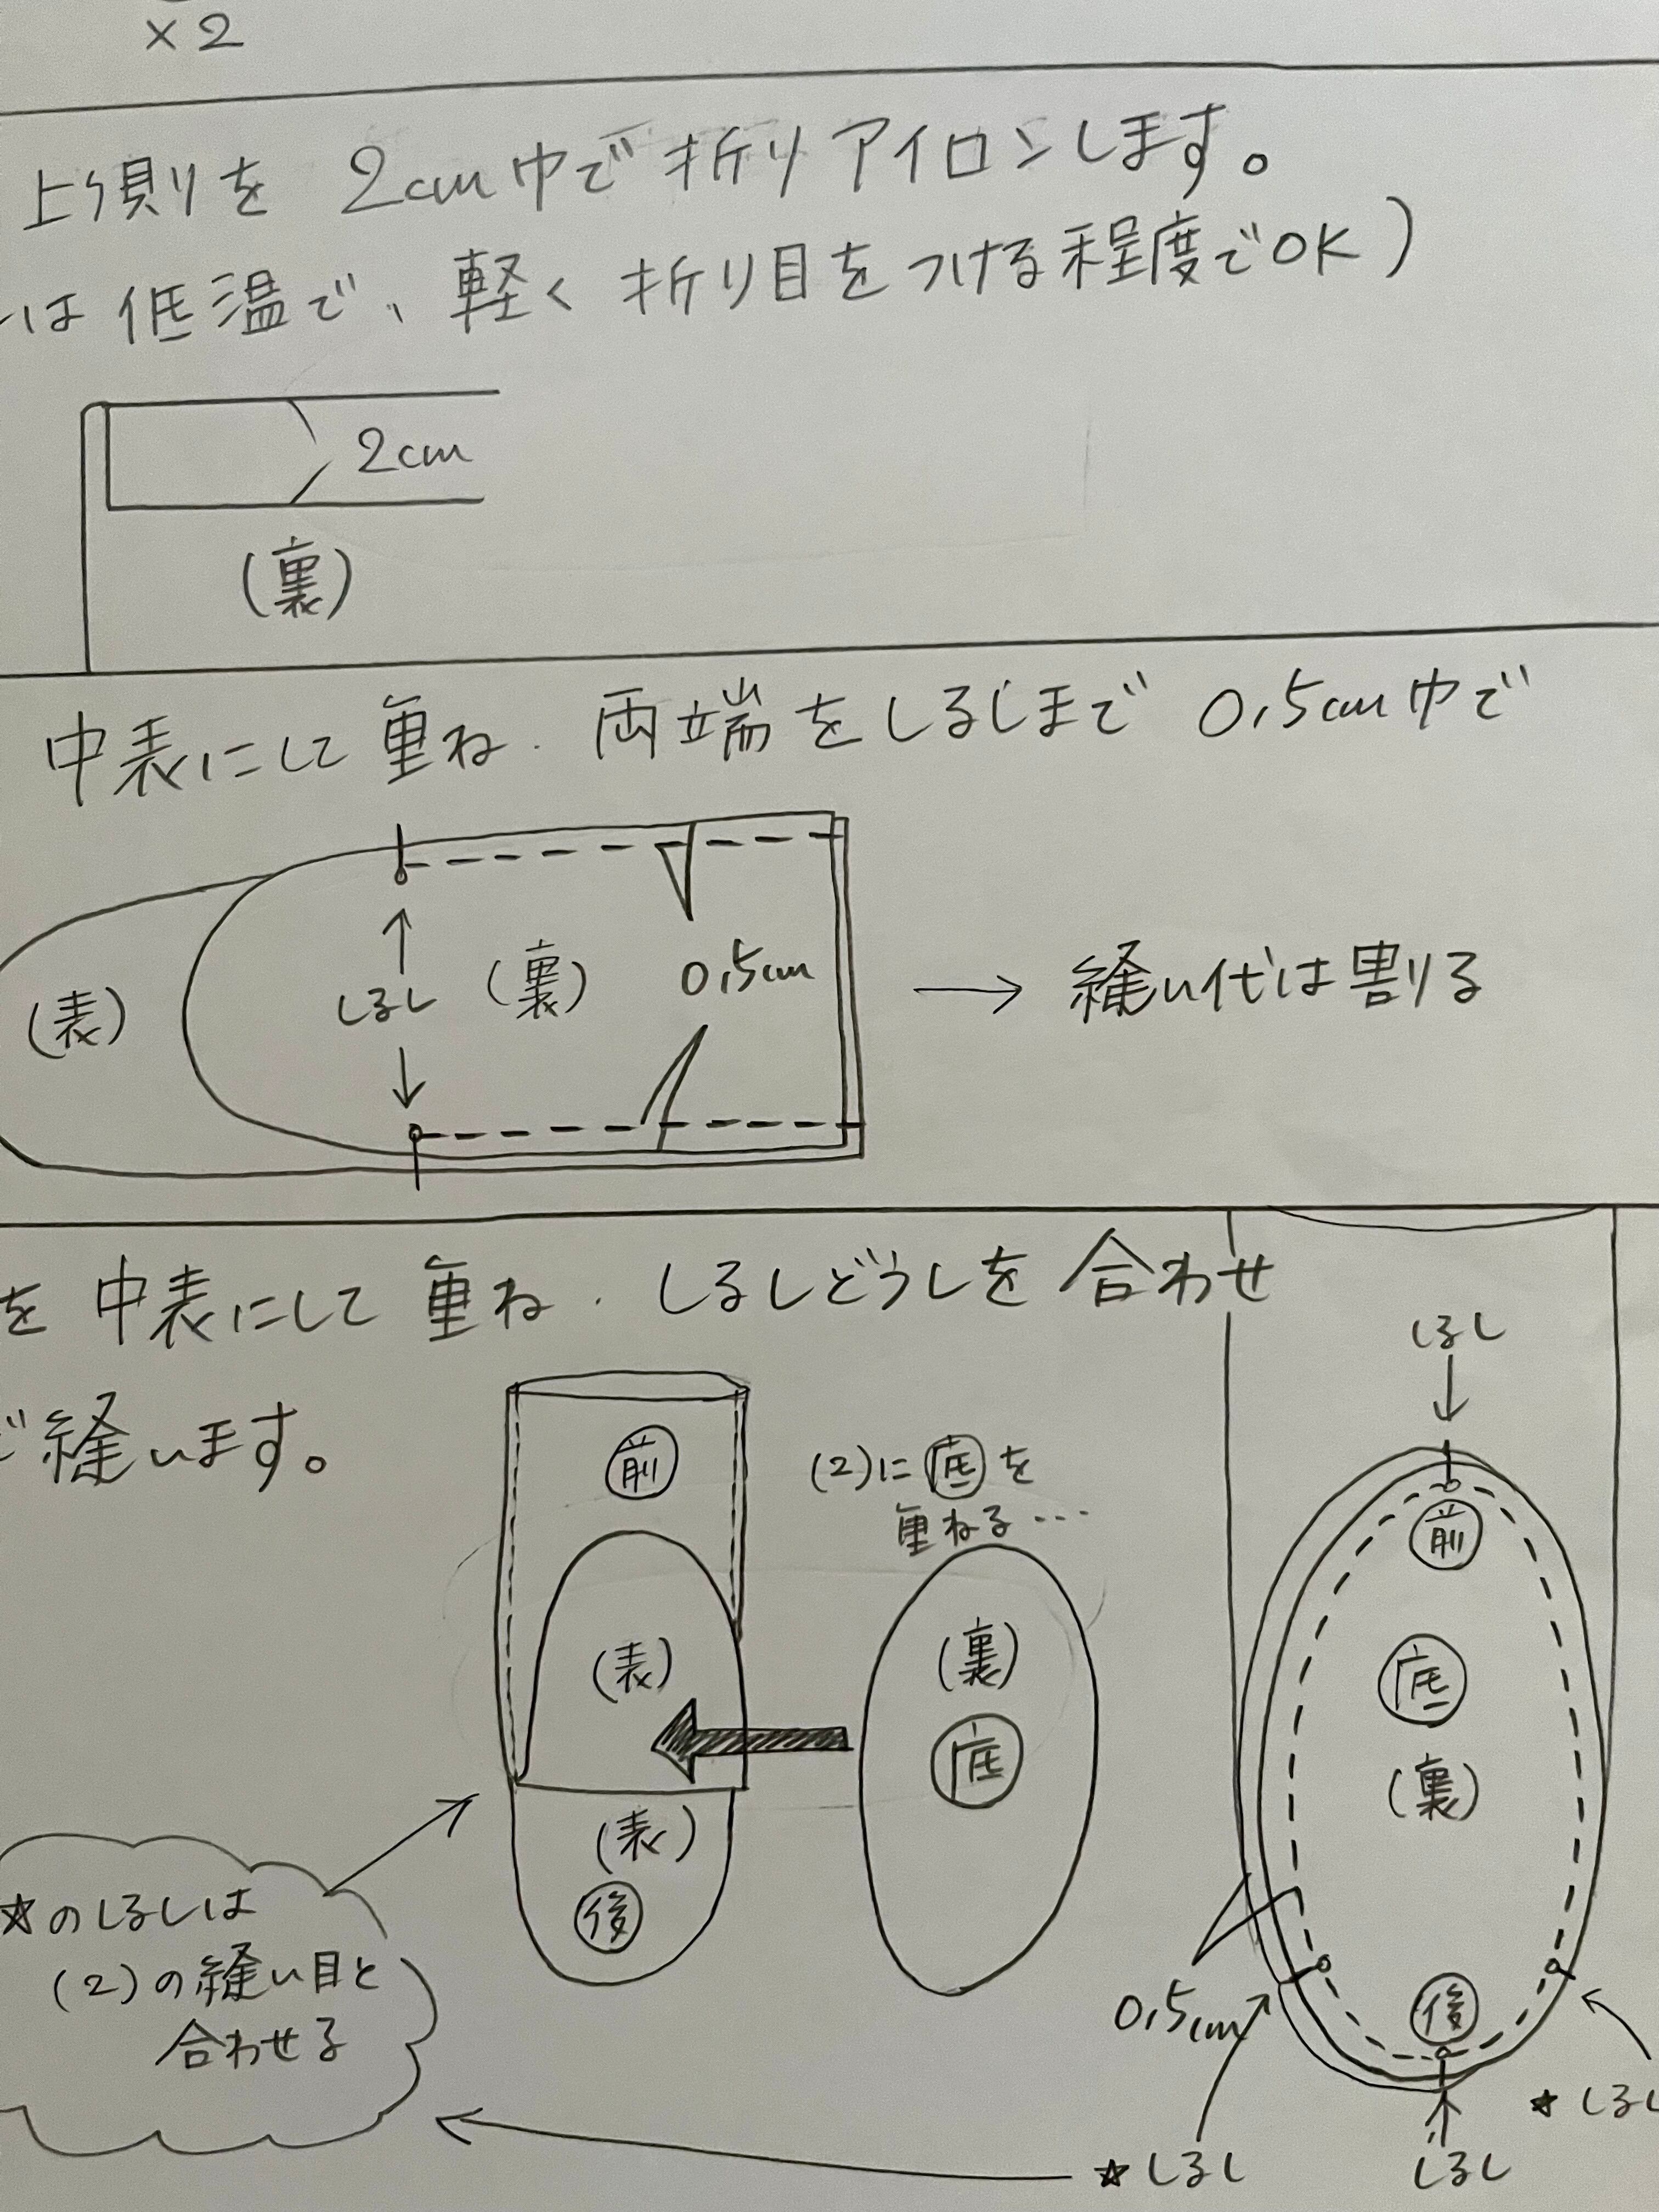 ×2
上側を 2cm巾で折りアイロンします。
は低温で、軽く折り目をつける程度でOK)
2cm
(裏)
中表にして重ね、両端をしるしまで 0.5cm巾で
(表)
しるし
(裏)
0.5cm
→ 縫い代は割る
を中表にして重ね、しるしどうしを合わせ
で縫います。
前
(表)
(表)
後
(2)に底を
重ねる…
(裏)
底
しるし
前
底
(裏)
後
0.5cm
★しるし
しるし
★しるし
★のしるしは
(2)の縫い目と
合わせる